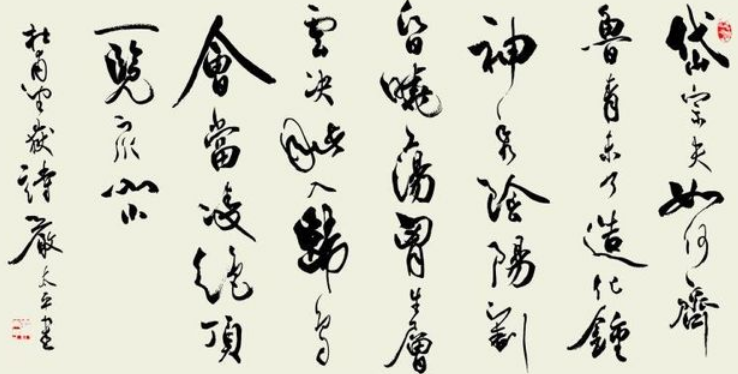 岱宗夫如何齊
魯青未了造化鍾
神秀陰陽割
昏曉蕩胸生層
雲決眥入歸鳥
會當凌絕頂
一覽衆山小
杜甫望嶽詩嚴太平書